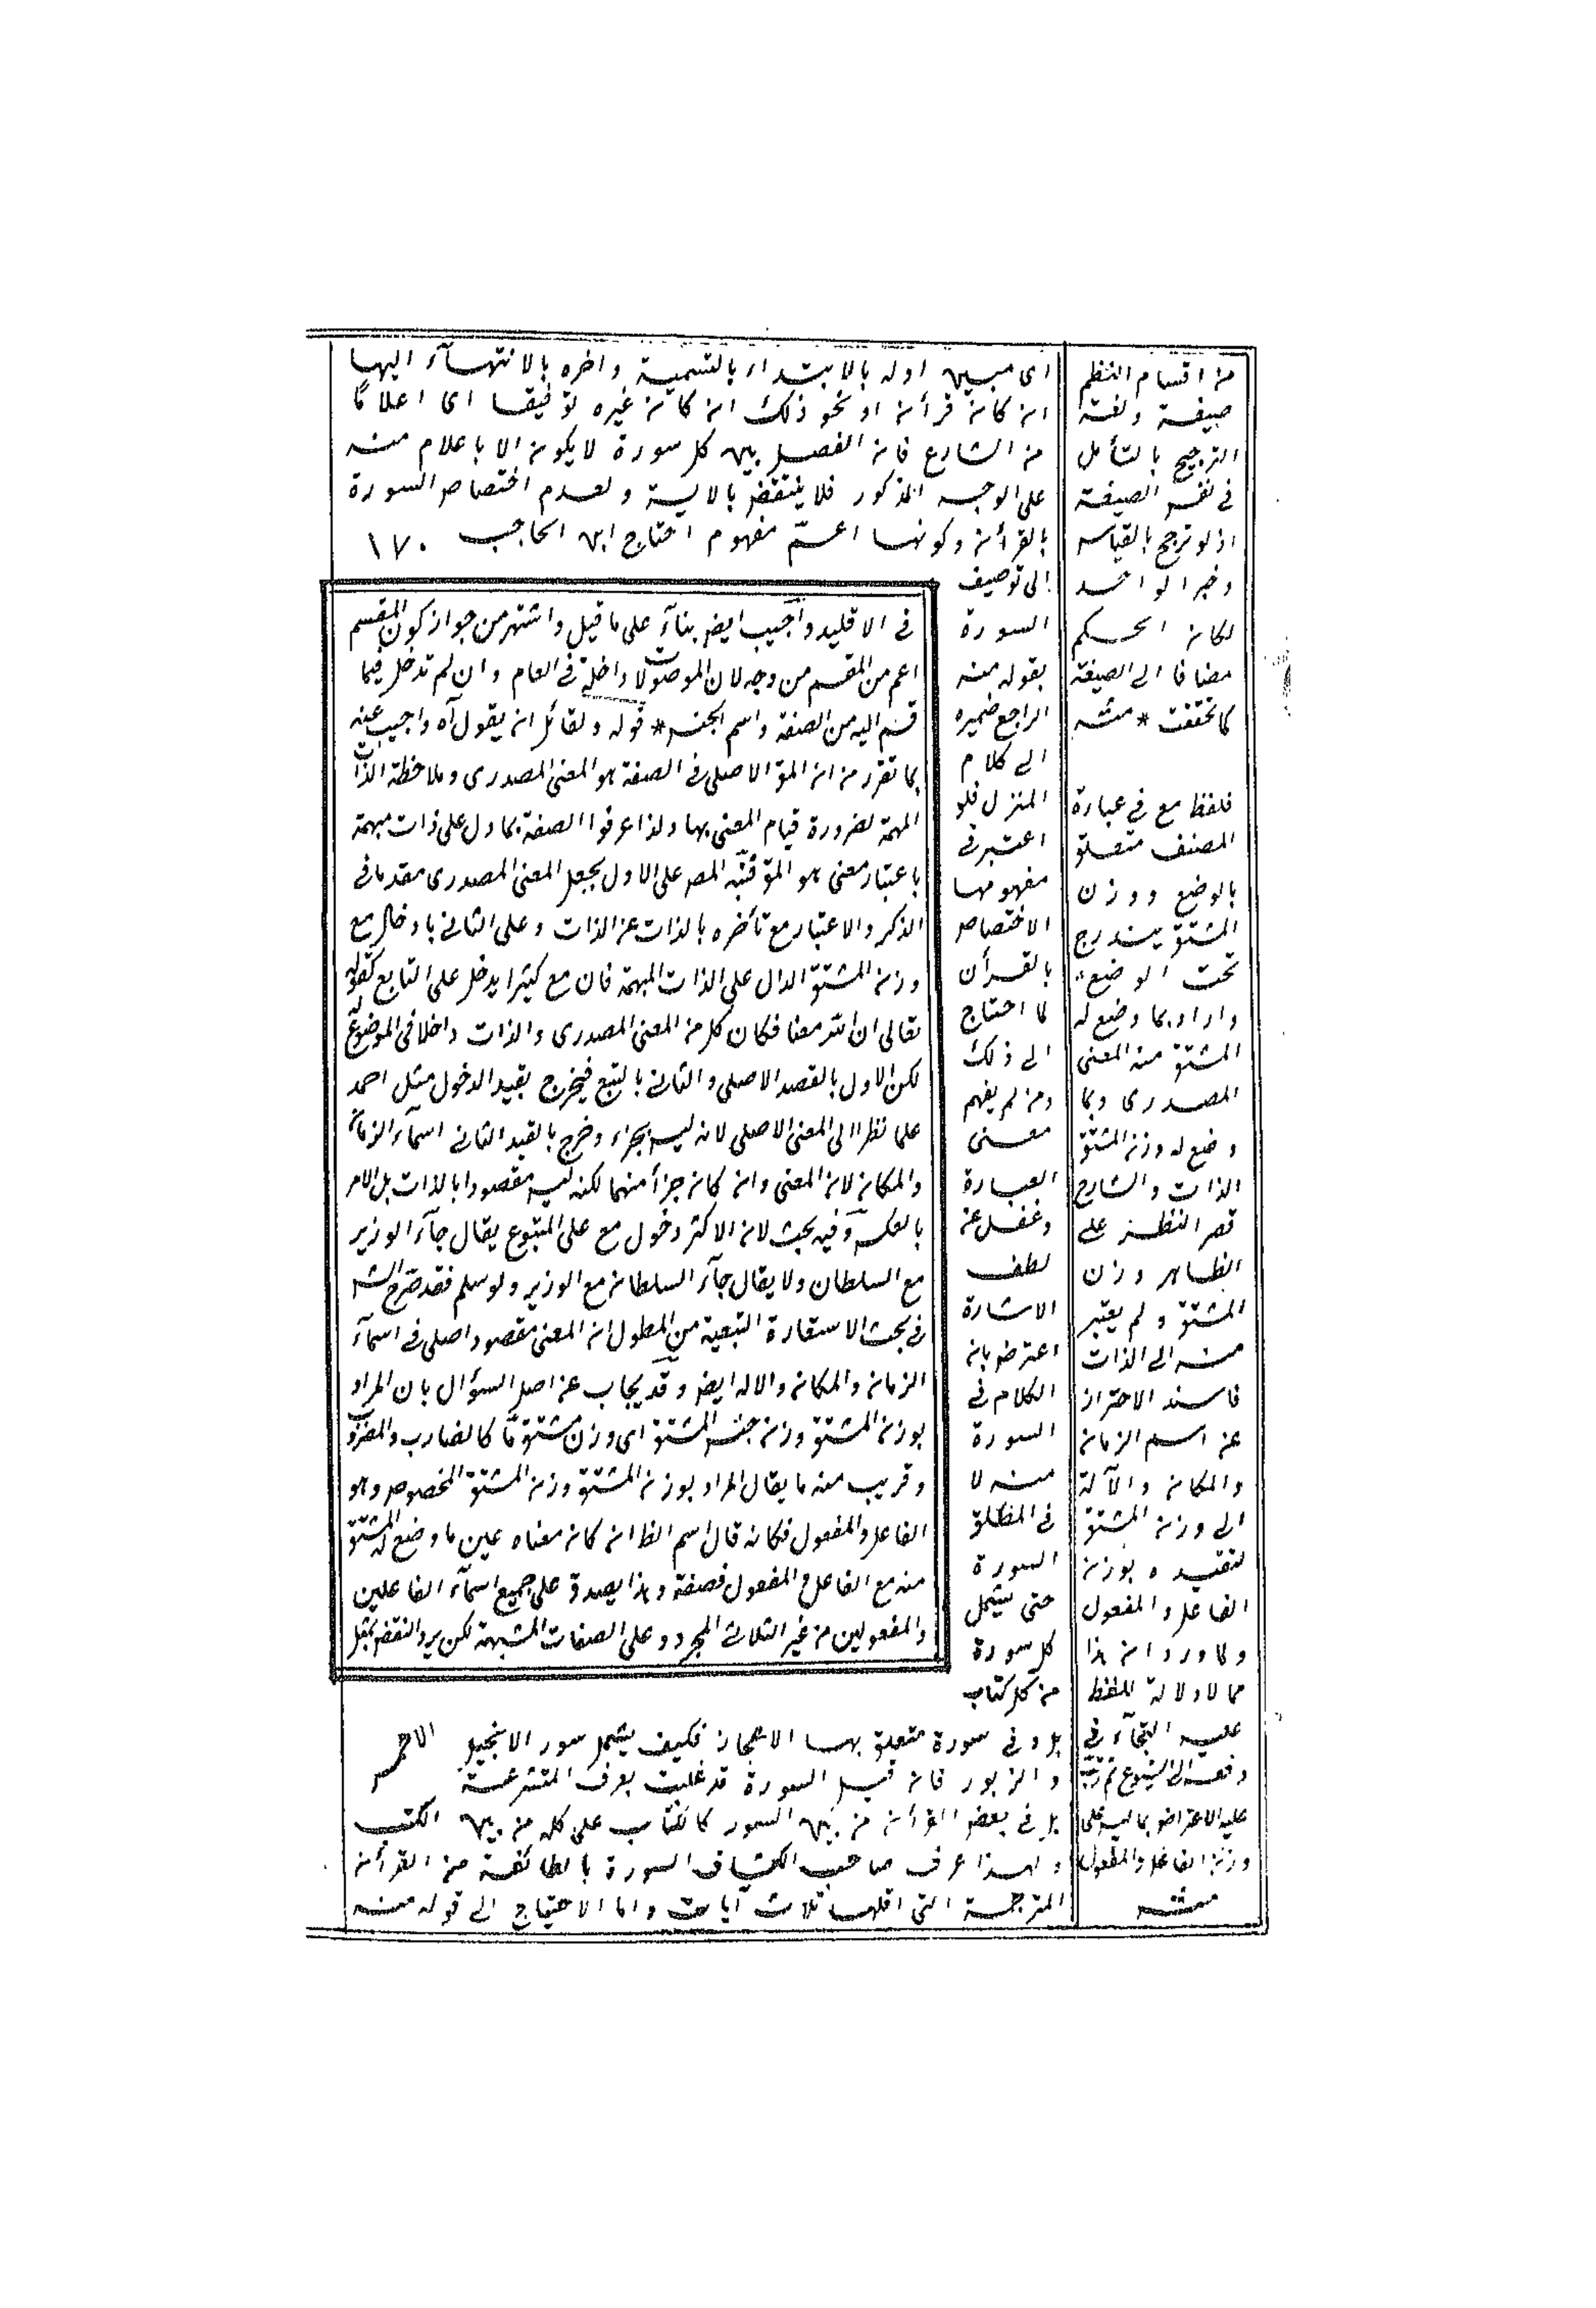 اى مبين اوله بالابتداء بالتسمية واخره بالانتهاء اليها
ان كان قرأن او نحو ذلك ان كان غيره توقيفا اى اعلاما
من الشارع فان الفصل بين كل سورة لا يكون الا باعلام منه
على الوجه المذكور فلا ينتقض بالاية ولعدم اختصاص السورة
بالقرأن وكونها اعم مفهوم احتاج ابن الحاجب ١٧٠
الى توصيف
السورة
بقوله منه
الراجع ضميره
الى كلام
المنزل فلو
اعتبر فى
مفهومها
الاختصاص
بالقرأن
لما احتاج
الى ذلك
ومن لم يفهم
معنى
العبارة
وغفل عن
لطف
الاشارة
اعترض بان
الكلام فى
السورة
منه لا
فى المطلق
السورة
حتى يشمل
كل سورة
من كل كتاب
بل وفى سورة متعلق بها الاعجاز فكيف يشمل سور الانجيل
والزبور فان قيل السورة قد غلبت بعرف المتشرعة
بل فى بعض القرأن من بين السور كالكتاب على كله من بين الكتب
ولهذا عرف صاحب الكشاف السورة بالطائفة من القرأن
المترجمة التى اقلها ثلاث آيات واما الاحتياج الى قوله منه
فى الاقليد واجيب ايضا بناء على ما قيل واشتهر من جواز كون المقسم
اعم من المقسم من وجه لان الموصولات داخلة فى العام وان لم تدخل فيما
قسم اليه من الصفة واسم الجنس * قوله ولقائل ان يقول آه واجيب عنه
بما تقرر من ان المق الاصلى فى الصفة هو المعنى المصدرى وملاحظة الذات
المبهمة لضرورة قيام المعنى بها ولذا عرفوا الصفة بما دل على ذات مبهمة
باعتبار معنى هو المق فنبه المص على الاول بجعل المعنى المصدرى مقدما فى
الذكر والاعتبار مع تأخره بالذات عن الذات وعلى الثانى بادخال مع
وزن المشتق الدال على الذات المبهمة فان مع كثيرا يدخل على التابع كقوله
تعالى ان الله معنا فكان كل من المعنى المصدرى والذات داخلا فى الموضوع له
لكن الاول بالقصد الاصلى والثانى بالتبع فيخرج بقيد الدخول مثل احمد
علما نظرا الى المعنى الاصلى لانه ليس بجزء وخرج بالقيد الثانى اسماء الزمان
والمكان لان المعنى وان كان جزأ منهما لكنه ليس مقصودا بالذات بل الامر
بالعكس وفيه بحث لان الاكثر دخول مع على المتبوع يقال جاء الوزير
مع السلطان ولا يقال جاء السلطان مع الوزير ولو سلم فقد صرح الشه
فى بحث الاستعارة التبعية من المطول ان المعنى مقصود اصلى فى اسماء
الزمان والمكان والاله ايضا وقد يجاب عن اصل السؤال بان المراد
بوزن المشتق وزن جنس المشتق اى وزن مشتق ما كالضارب والمضروب
وقريب منه ما يقال المراد بوزن المشتق وزن المشتق المخصوص وهو
الفاعل والمفعول فكانه قال اسم الظ ان كان معناه عين ما وضع له المشتق
منه مع الفاعل والمفعول فصفة وهذا يصدق على جميع اسماء الفاعلين
والمفعولين من غير الثلاثى المجرد وعلى الصفات المشبهة لكن يرد النقض بمثل
الاحمر
من اقسام النظم
صيغة ولغة
الترجيح بالتأمل
فى نفس الصيغة
اذ لو ترجح بالقياس
وخبر الواحد
لكان الحكم
مضافا الى الصيغة
كما تحققت * منه
فلفظ مع فى عبارة
المصنف متعلق
بالوضع ووزن
المشتق يندرج
تحت الوضع
واراد بما وضع له
المشتق منه المعنى
المصدرى وبما
وضع له وزن المشتق
الذات والشارح
قصر النظر على
الظاهر وزن
المشتق ولم يعتبر
منه الى الذات
فاسند الاحتراز
عن اسم الزمان
والمكان والآلة
الى وزن المشتق
لتقييده بوزن
الفاعل والمفعول
ولما ورد ان هذا
مما لا دلالة للفظ
عليه التجاء فى
دفعه الى الشيوع ثم رتب
عليه الاعتراض بما ليس على
وزن الفاعل والمفعول
منه